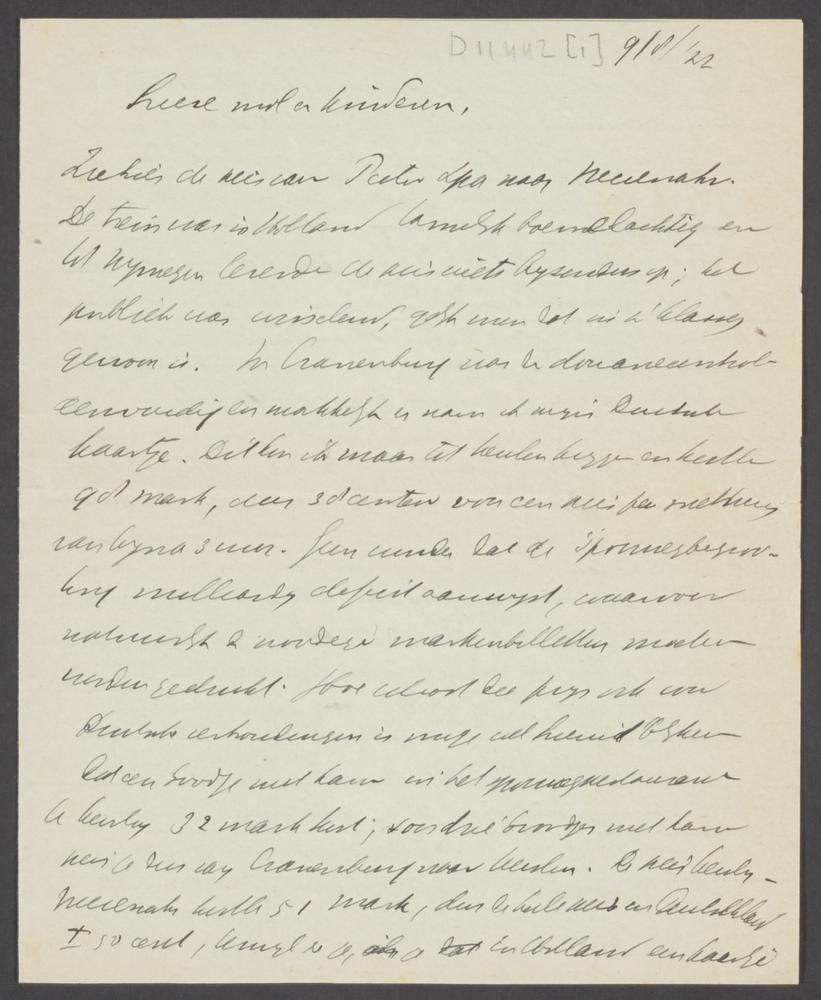 D11442 [1] 9/8/'22
Lieve mol en kinderen,
Ziehier de reis van Pater Spa naar Neuenahr.
De trein was in Holland tamelijk boemelachtig en
tot Nymegen leverde de reis niets byzonders op; het
publiek was wisselend, gelyk men dat in 2e klasse
gewoon is. In Cranenburg was de douanecontrole
eenvoudig en makkelyk en nam ik mijn Duitsch
kaartje. Dit kon ik maar tot Keulen krygen en kostte
90 mark, dus 30 centen voor een reis per sneltrein
van byna 3 uur. Geen wonder dat de spoorwegbegroo-
ting milliarden deficit aanwyst, waarvoor
natuurlyk de noodige markenbilletten moeten
worden gedrukt. Hoe dwaas die prys ook voor
Duitsche verhoudingen is moge wel hieruit blyken
dat een broodje met ham in het spoorwegrestaurant
te Keulen 32 mark kost; voor drie broodjes met ham
reis je dus van Cranenburg naar Keulen. De reis Keulen-
Neuenahr kostte 51 mark, dus de heele reis in Duitschland
± 50 cent, terwyl in Holland een kaartje